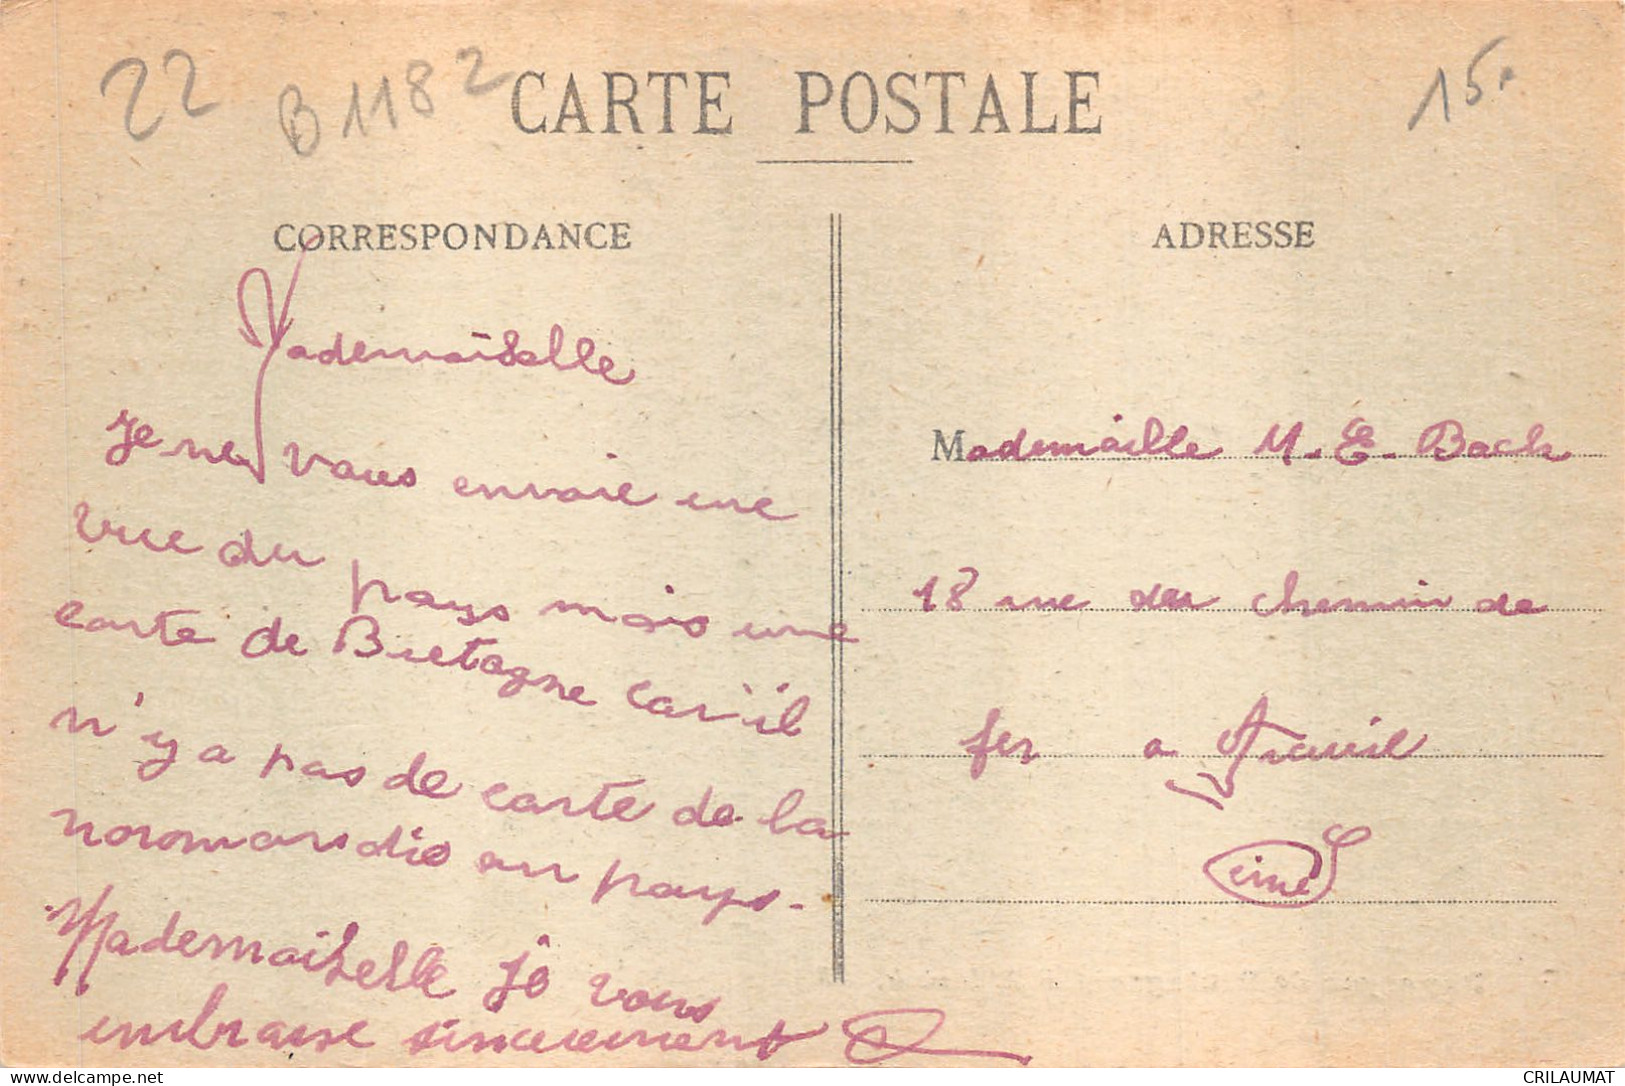 22
B1182
CARTE POSTALE
15.
CORRESPONDANCE
Mademaiselle
Je ne vous envoie une
vue du pays mais une
carte de Bretagne car il
n'y a pas de carte de la
noromandie au pays.
Mademaiselle je vous
embrasse sincerement
ADRESSE
Mademaille M.E. Back
18 rue du chemin de
fer a
Seine
CRILAUMAT